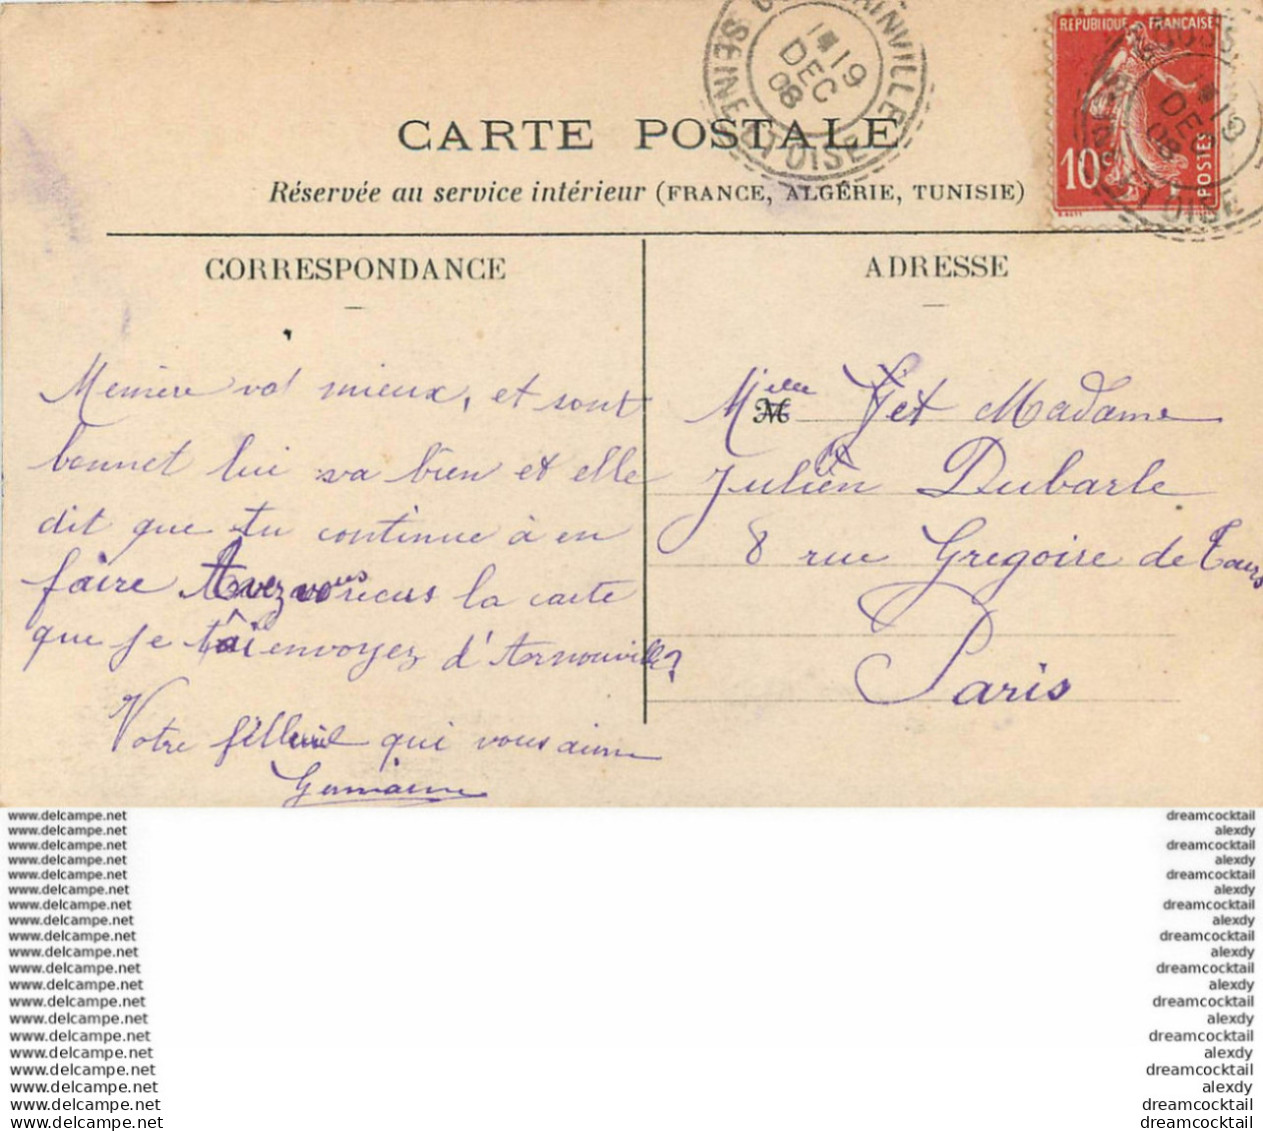 SEINE ET OISE
1 19
DEC
08
REPUBLIQUE FRANÇAISE
10c
POSTES
CARTE POSTALE
Réservée au service intérieur (FRANCE, ALGÉRIE, TUNISIE)
CORRESPONDANCE
va mieux, et sont
bonnet lui va bien et elle
dit que tu continue à en
faire Avez vous recus la carte
que je t'ai envoyez d'Arnouville?
Votre filleule qui vous aime
Germaine
ADRESSE
M et Madame
Julien Dubarle
8 rue Gregoire de Tours
Paris
www.delcampe.net
www.delcampe.net
www.delcampe.net
www.delcampe.net
www.delcampe.net
www.delcampe.net
www.delcampe.net
www.delcampe.net
www.delcampe.net
www.delcampe.net
www.delcampe.net
www.delcampe.net
www.delcampe.net
www.delcampe.net
www.delcampe.net
www.delcampe.net
www.delcampe.net
www.delcampe.net
www.delcampe.net
www.delcampe.net
dreamcocktail
alexdy
dreamcocktail
alexdy
dreamcocktail
alexdy
dreamcocktail
alexdy
dreamcocktail
alexdy
dreamcocktail
alexdy
dreamcocktail
alexdy
dreamcocktail
alexdy
dreamcocktail
alexdy
dreamcocktail
dreamcocktail